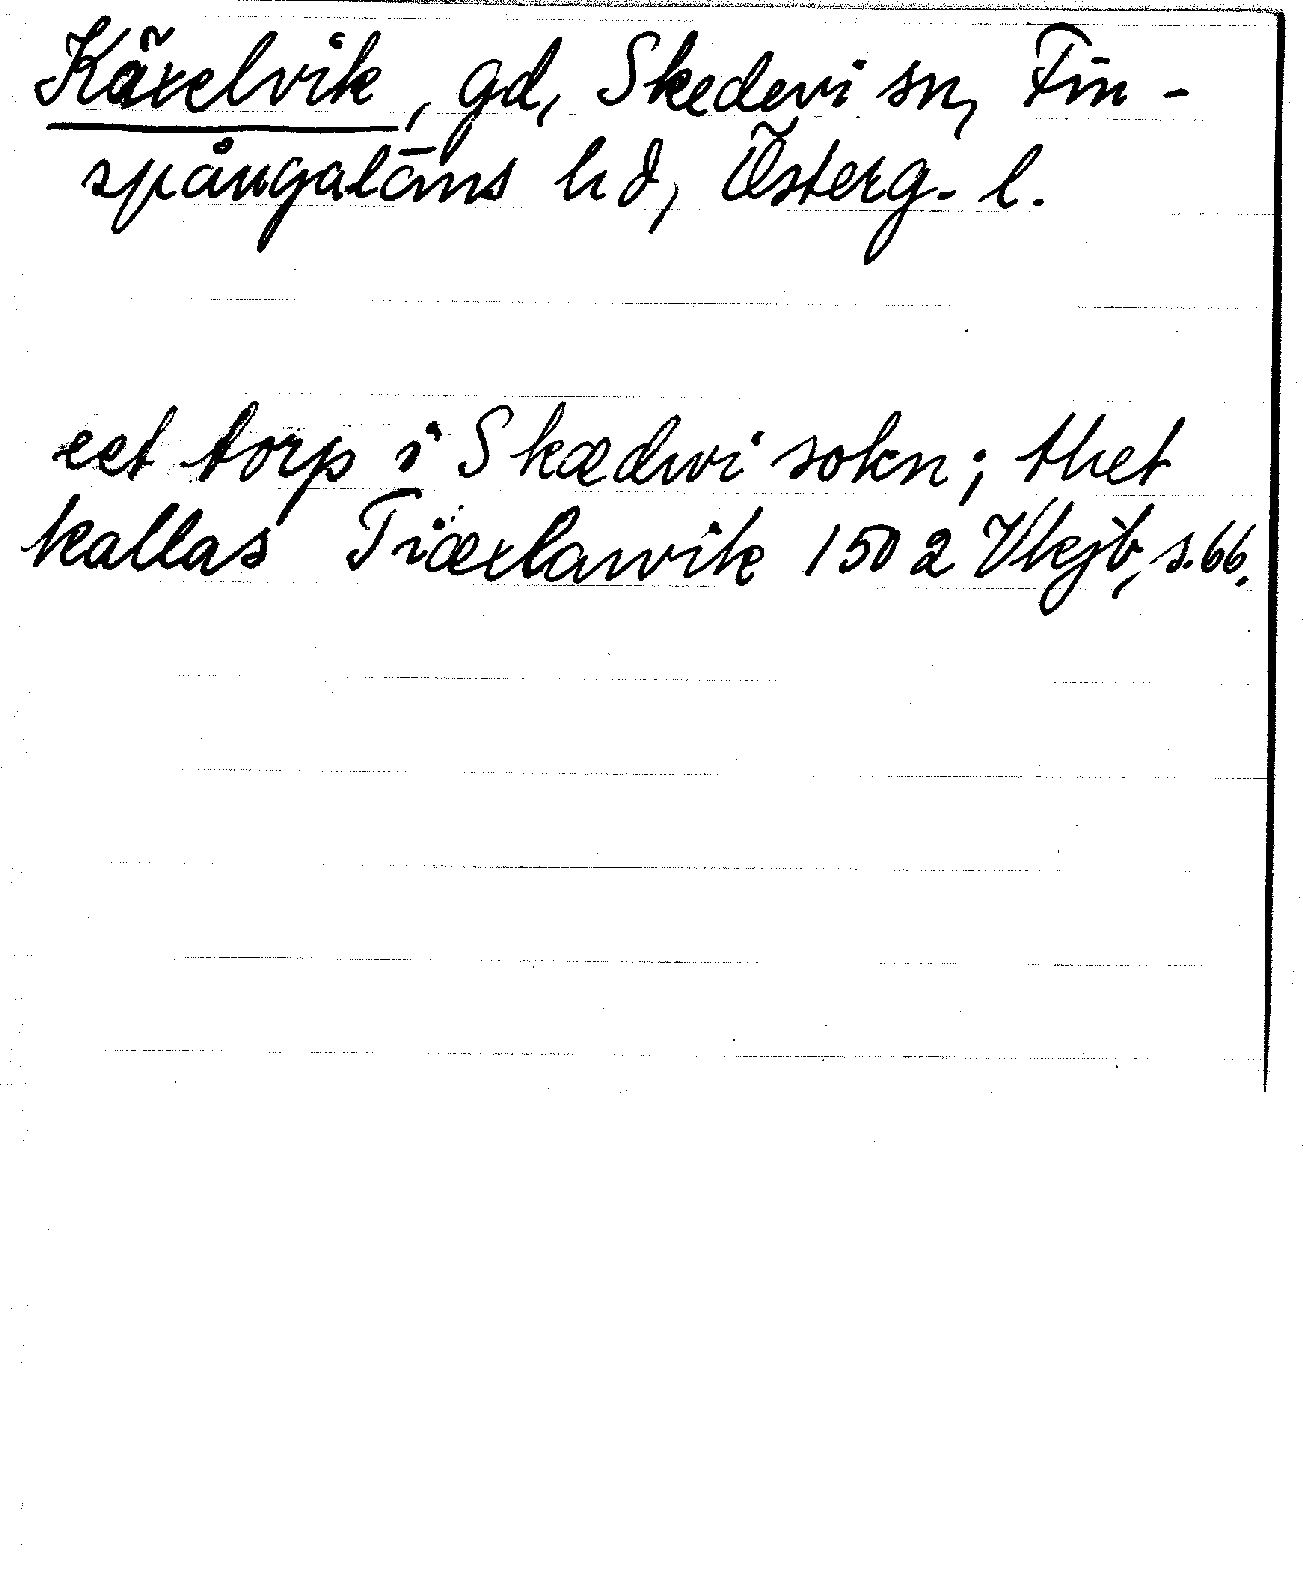 Käxelvik, gd, Skedevi sn, Fin-
spångaläns hd, Österg. l.
eet torp i Skædwi sokn; thet
kallas Tiæxlawik 1502 Vkjb, s. 66.